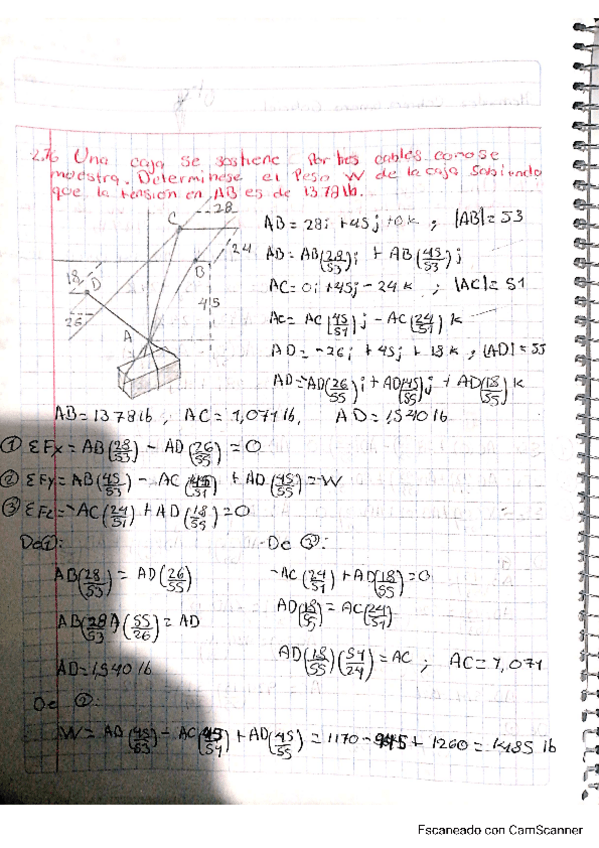 2.76 Una caja se sostiene por tres cables como se
muestra. Determinese el Peso W de la caja sabiendo
que la tensión en AB es de 1378 lb.
28
C
24
B
18
D
45
26
A
AB = 28i + 45j + 0k ; |AB| = 53
AB = AB(28/53)i + AB(45/53)j
AC = 0i + 45j - 24k ; |AC| = 51
AC = AC(45/51)j - AC(24/51)k
AD = -26i + 45j + 18k ; |AD| = 55
AD = -AD(26/55)i + AD(45/55)j + AD(18/55)k
AB = 1378 lb, AC = 1,071 lb, AD = 1,540 lb
① ΣFx = AB(28/53) - AD(26/55) = 0
② ΣFy = AB(45/53) - AC(45/51) + AD(45/55) = W
③ ΣFz = -AC(24/51) + AD(18/55) = 0
De ①:
AB(28/53) = AD(26/55)
AB(28/53)(55/26) = AD
AD = 1,540 lb
De ③:
-AC(24/51) + AD(18/55) = 0
AD(18/55) = AC(24/51)
AD(18/55)(51/24) = AC ; AC = 1,071
De ②:
W = AB(45/53) - AC(45/51) + AD(45/55) = 1170 - 945 + 1260 = 1485 lb
Escaneado con CamScanner